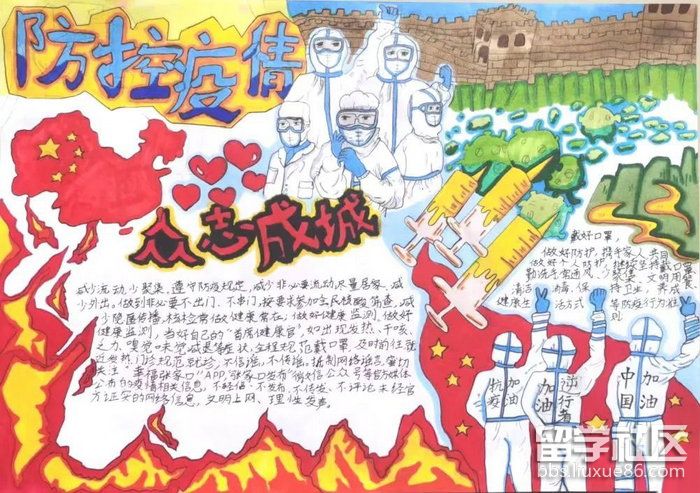 防控疫情
众志成城
减少流动,少聚集,遵守防疫规定,减少非必要流动,尽量居家、减
少外出。做到非必要不出门、不串门,按要求参加全民核酸筛查,减
少隐匿传播,核检常做,健康常在,做好健康监测,做好
健康监测,当好自己的“首席健康官”,如出现发热、干咳、
乏力、嗅觉味觉减退等症状,全程规范戴口罩及时前往就
近发热门诊规范就诊,不信谣,不传谣,抵制网络谣言,密切
关注“幸福张家口”APP,张家口发布“微信公众号等官方媒体
公布的疫情相关信息,不轻信、不发布、不传发、不评论未经官
方证实的网络信息,文明上网、理性发声。
戴好口罩,
做好防护,携手家人共同
做好个人防护,继续坚持戴口罩
勤洗手常通风,少聚集,文明用
清洁 消毒,保 持卫生,养成
健康生 活方式 等防疫行为准则
抗疫 加油
加油 逆行者
中国 加油
留学社区
bbs.liuxue86.com